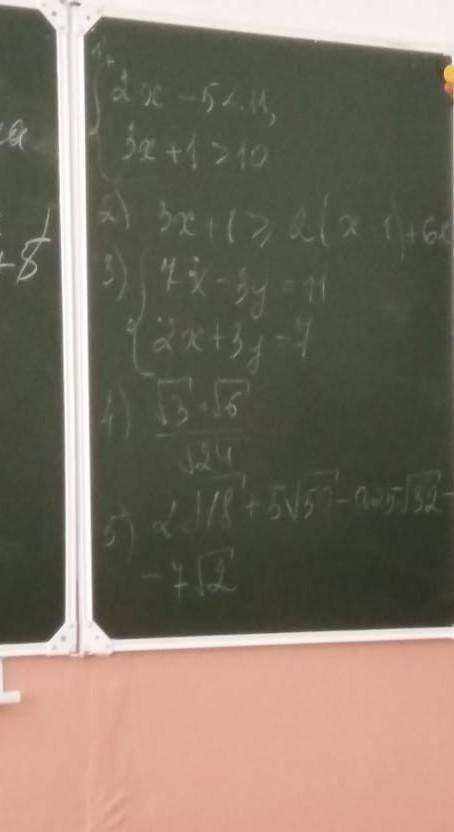 a
+8
1)
2x - 5 < 11,
3x + 1 > 10
2) 3x + 1 ≥ 2(x - 1) + 6x
3) 7x - 3y = 11
2x + 3y = 7
4) √3 · √6
√24
5) 2√18 + 5√50 - 0,25√32 -
- 7√2